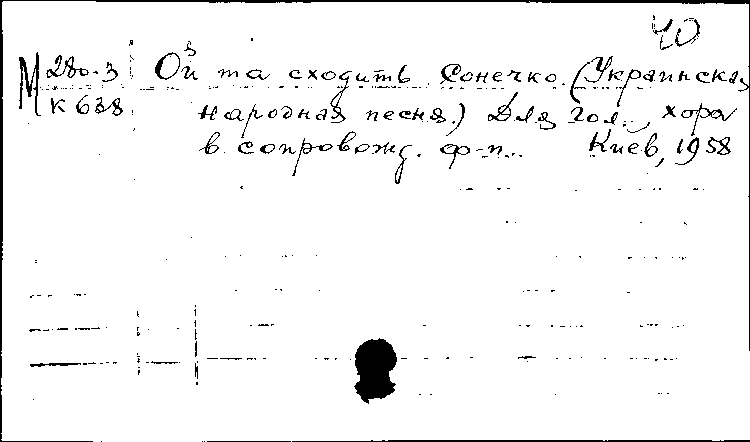 40
М 280-3 Ой та сходить сонечко. (Украинская
К 638 народная песня.) Для гол., хора
в сопровожд. ф-п.. Киев, 1958